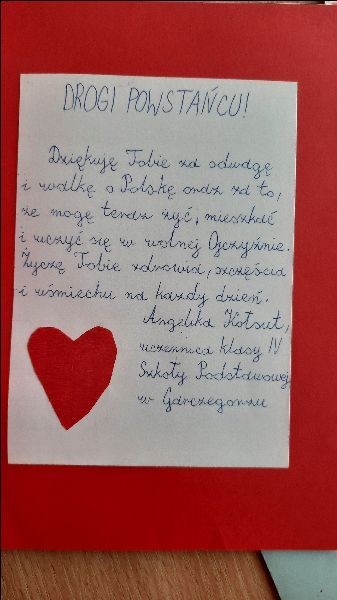 DROGI POWSTAŃCU!
Dziękuję Tobie za odwagę
i walkę o Polskę oraz za to,
że mogę teraz żyć, mieszkać
i uczyć się w wolnej Ojczyźnie.
Życzę Tobie zdrowia, szczęścia
i uśmiechu na każdy dzień.
Angelika Kotsut,
uczennica klasy IV
Szkoły Podstawowej
w Garczegorzu